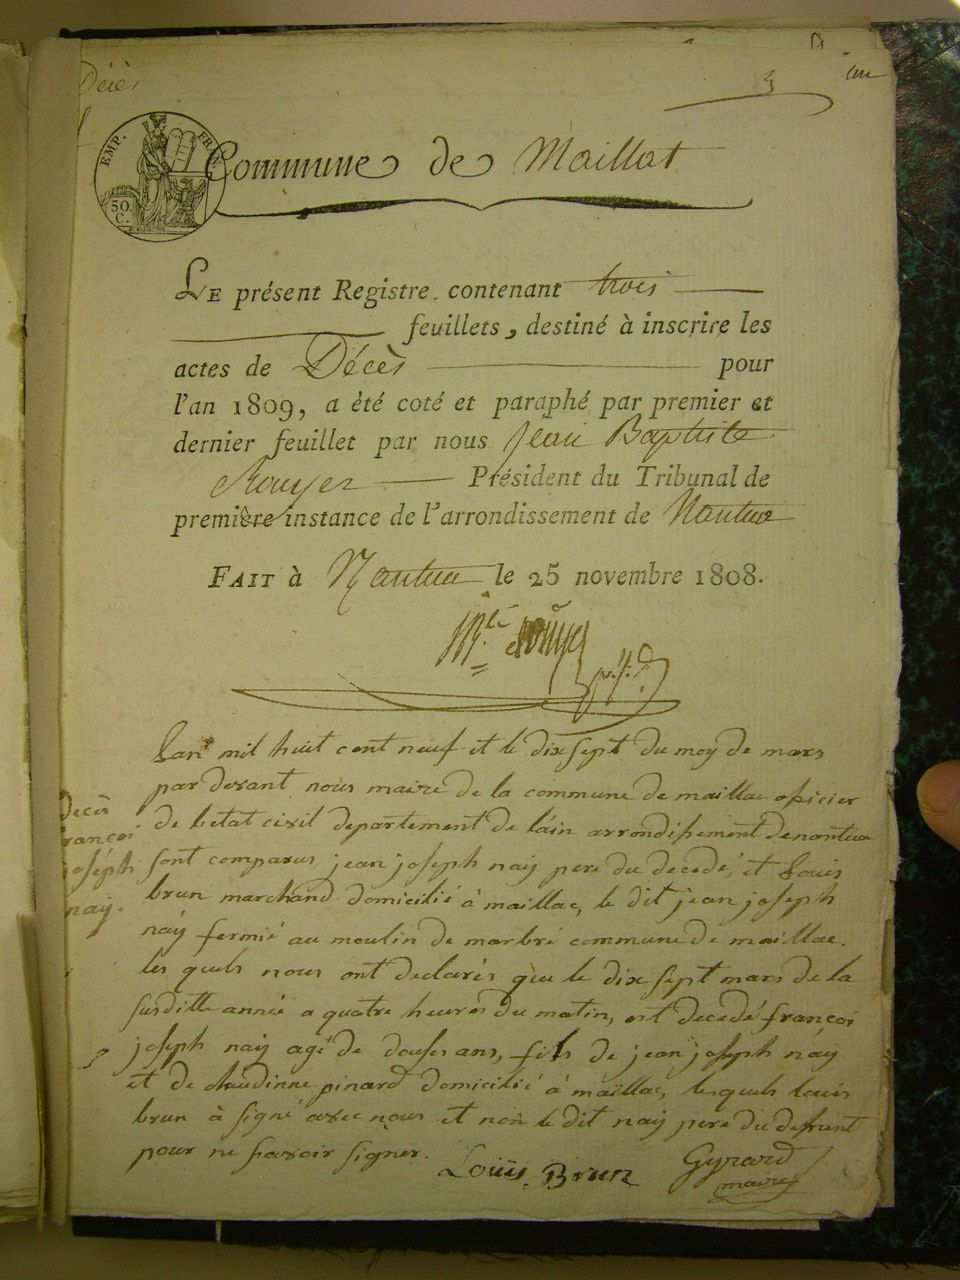 Décès
3
un
EMP. FRAN.
50. C.
Commune de Maillat
LE présent Registre, contenant trois
feuillets, destiné à inscrire les
actes de Décès pour
l'an 1809, a été coté et paraphé par premier et
dernier feuillet par nous Jean Baptiste
Rouyer Président du Tribunal de
première instance de l'arrondissement de Nantua
FAIT à Nantua le 25 novembre 1808.
Lan mil huit cent neuf et le dix sept du moy de mars
par devant nous maire de la commune de maillac oficier
de letat civil departement de lain arrondissement denantua
sont comparus jean joseph naÿ pere du decedé, et Louis
brun marchand domicilié à maillac, le dit jean joseph
naÿ fermié au moulin de marbré commune de maillac.
les quels nous ont declarés que le dix sept mars de la
susditte année a quatre heures du matin, est decedé françoi
joseph naÿ agé de douses ans, fils de jean joseph naÿ
et de claudinne pinard domicilié à maillac, les quels louis
brun à signé avec nous et non le dit naÿ pere du defunt
pour ne savoir signer.
Decès
françoi
joséph
naÿ.
Louis Brun
Gyrard
maire